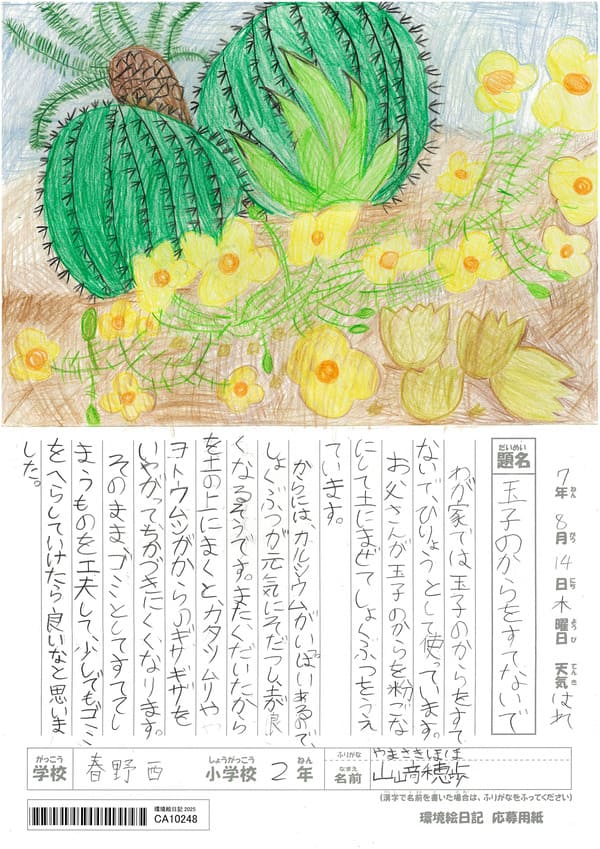 7年ねん8月がつ14日にち木曜日ようび 天気てんき はれ
だいめい
題名
玉子のからをすてないで
わが家では玉子のからをすて
ないで、ひりょうとして使っています。
お父さんが玉子のからを粉ごな
にして土にまぜてしょくぶつをうえ
ています。
からには、カルシウムがいっぱいあるので、
しょくぶつが元気にそだつし、土が良
くなるそうです。またくだいたから
を土の上にまくと、カタツムリや
ヨトウムシがからのギザギザを
いやがって、ちかづきにくくなります。
そのままゴミとしてすててし
まうものを工夫して、少しでもゴミ
をへらしていけたら良いなと思いま
した。
がっこう しょうがっこう ねん ふりがな やまさきほほ
学校 春野西 小学校 2年 なまえ 名前 山崎穂歩
(漢字で名前を書いた場合は、ふりがなをふってください)
環境絵日記 2025
CA10248
環境絵日記 応募用紙